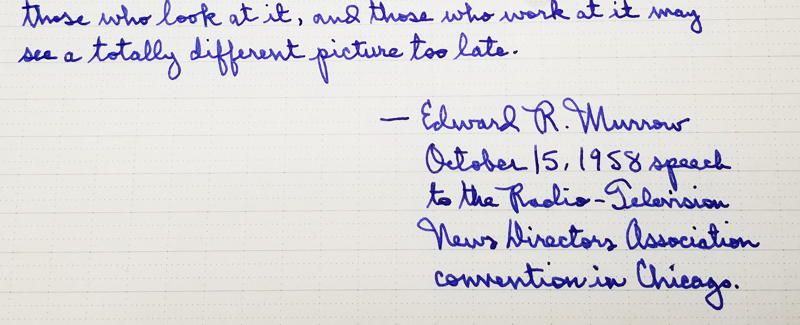 those who look at it, and those who work at it may
see a totally different picture too late.
— Edward R. Murrow
October 15, 1958 speech
to the Radio-Television
News Directors Association
convention in Chicago.